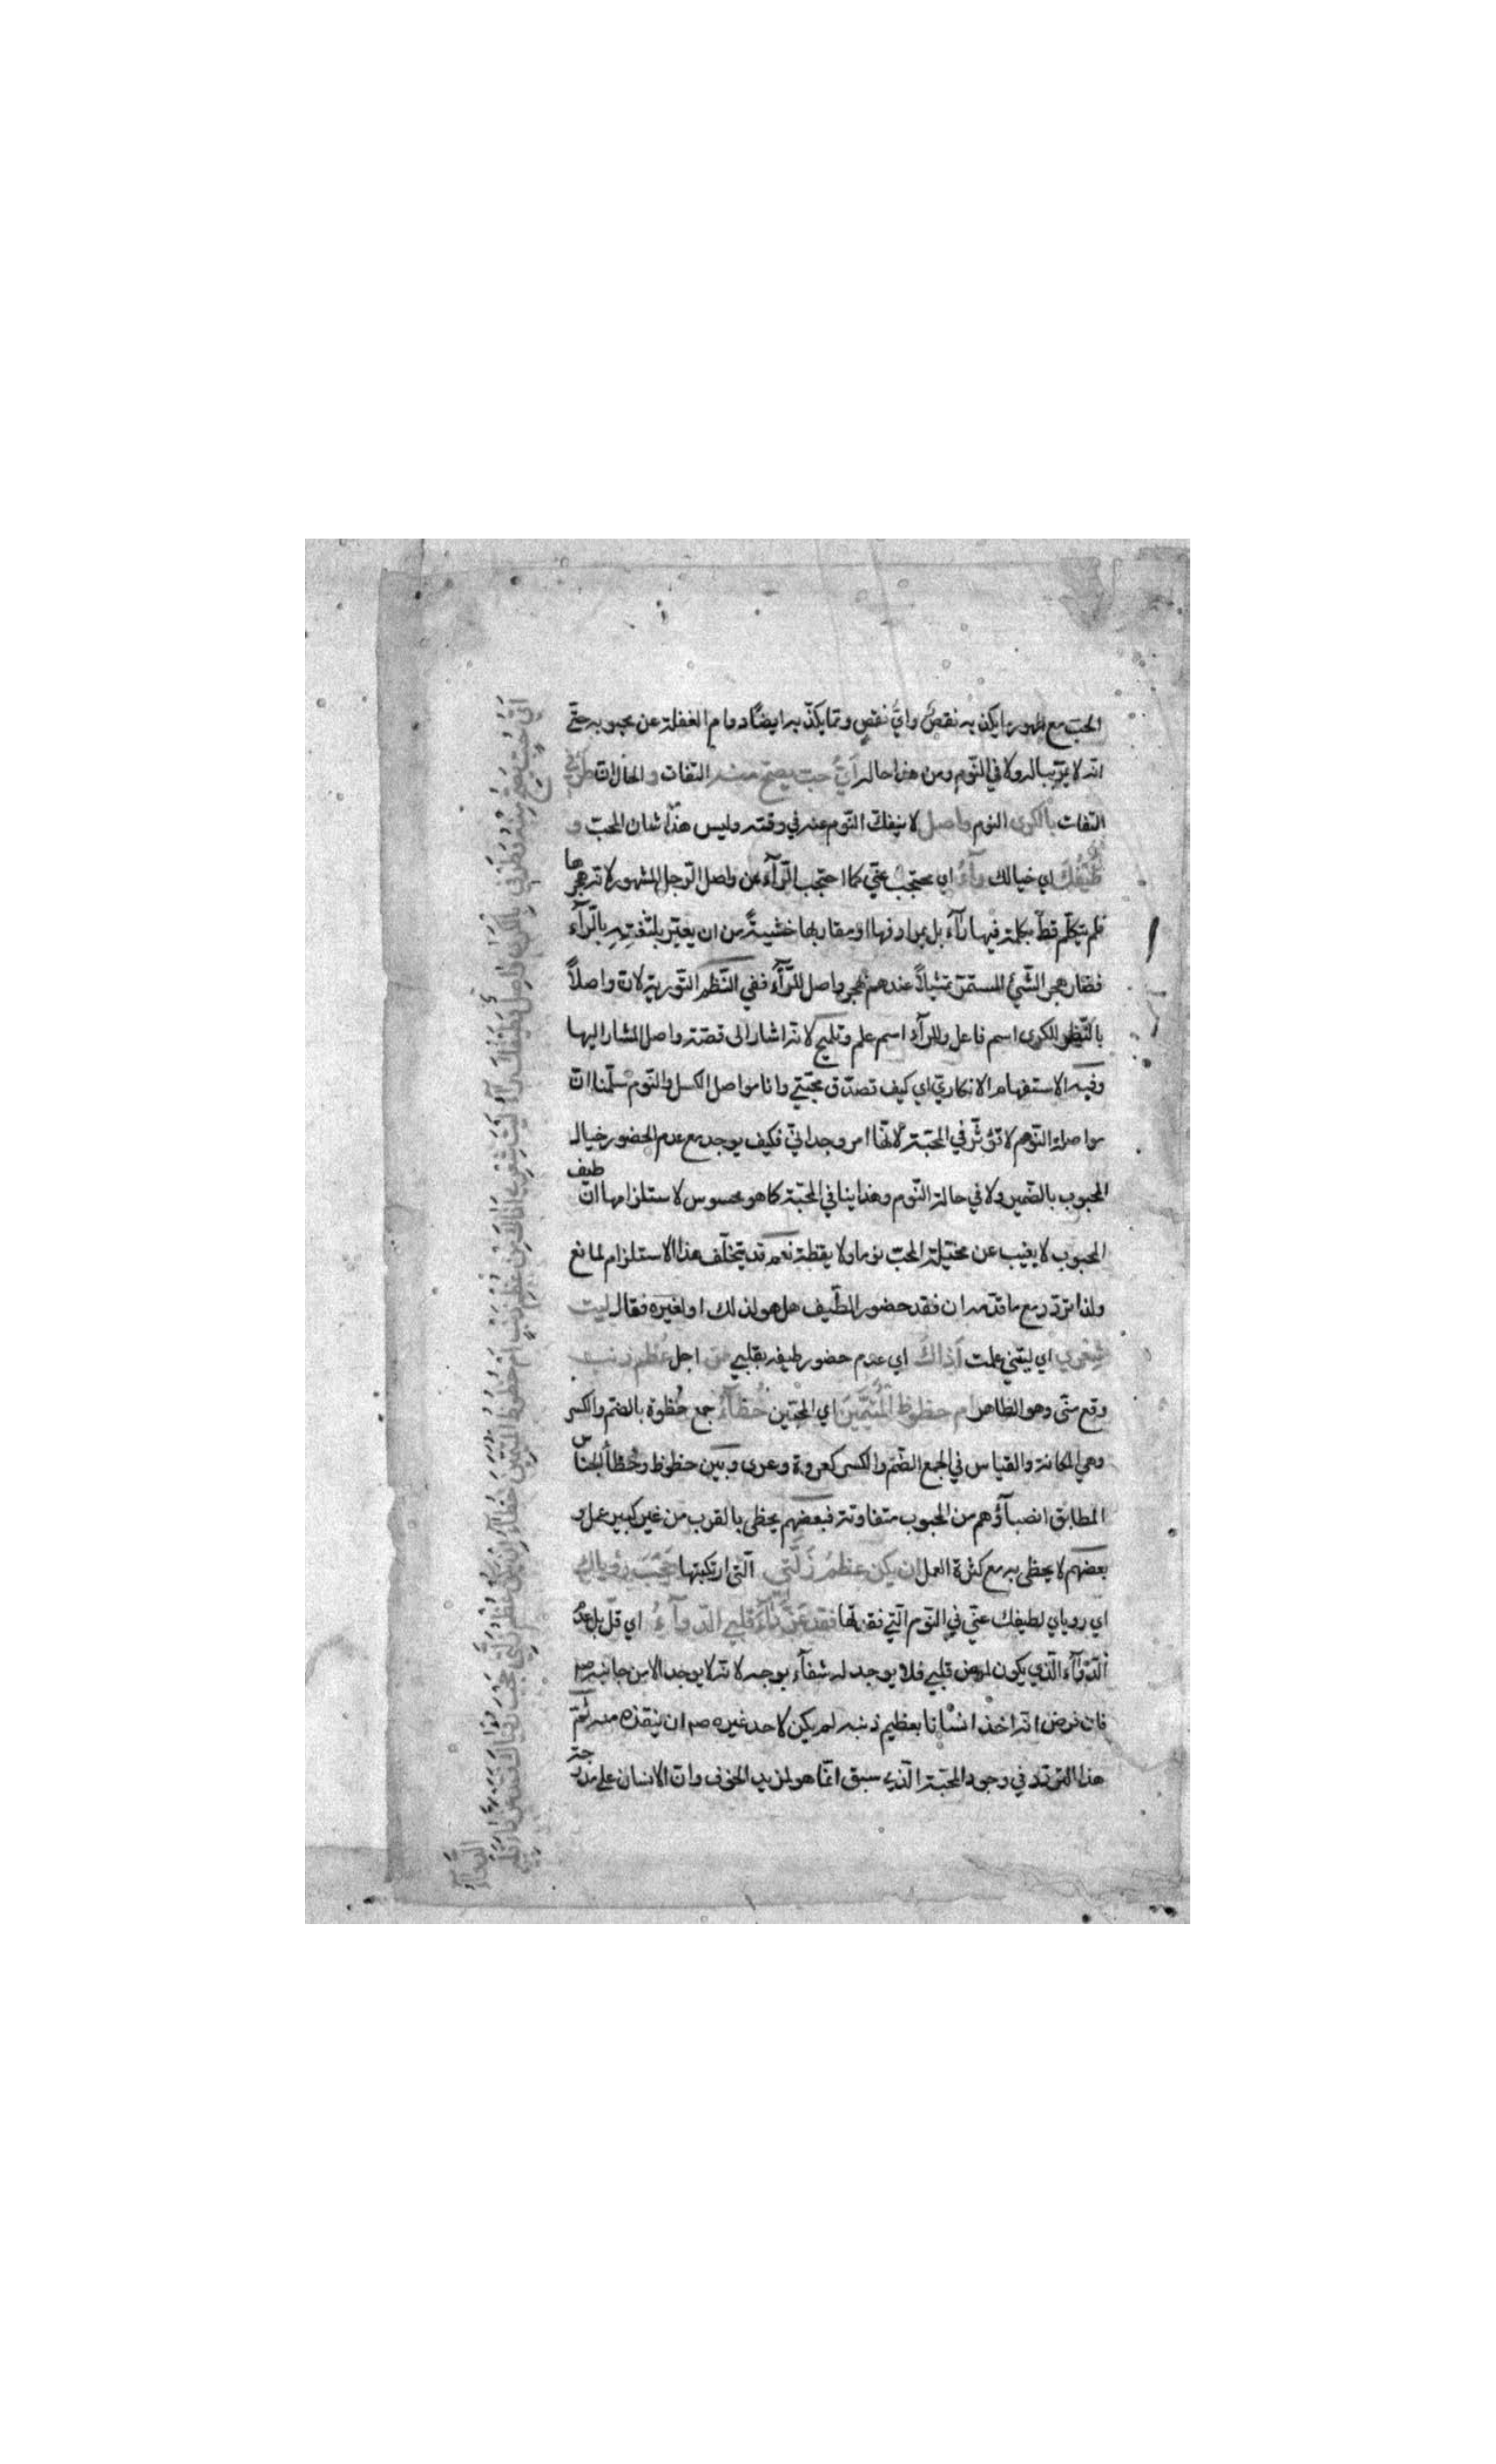 الحب مع ظهور ما يكذبه نقصٌ وايّ نقصٍ ومما يكذّب به ايضًا دوام الغفلة عن محبوبه حتّى
انه لا يمرّ بباله ولا في النّوم ومن هذا حاله أيُّ حبّ يصحّ منه التفات و الحال ان طرفي
التفات بالكرى النوم واصل لا ينفكّ النّوم عنه في وقته وليس هذا شان المحبّ و
طيفُكَ اي خيالك رآءُ اي محتجب عنّي كما احتجب الرّآء عن واصل الرّجل المشهور لانه هجرها
فلم يتكلّم قطّ بكلمة فيها رآء بل بمرادفها او مقاربها خشيةً من ان يعيّر بلثغته بالرّآء
فصار هجر الشّيئ المستمرّ تمثيلاً عندهم بهجر واصل للرّآء ففي النّظم التّورية لانّ واصلاً
بالنّظر للكرى اسم فاعل وللرآء اسم علم وتلميح لانه اشار الى قصّته واصل المشار اليها
وفيه الاستفهام الانكاريّ اي كيف تصدّق محبّتي وانا مواصل الكسل والنّوم سلّمنا انّ
مواصلة النّوم لا تؤثّر في المحبّة لانّها امر وجدانيّ فكيف يوجد مع عدم الحضور خيال
المحبوب بالضّمير ولا في حالة النّوم وهذا ينافي المحبّة كما هو محسوس لاستلزامها انّ طيف
المحبوب لا يغيب عن مخيّلة المحبّ نوما ولا يقظة نعم قد يتخلّف هذا الاستلزام لمانع
ولذا تردّد مع ما قدّمه ان فقد حضور الطّيف هل هو لذلك او لغيره فقال ليت
شعري اي ليتني علمت أذاكَ اي عدم حضور طيفه بقلبي من اجل عُظم ذنب
وقع منّي وهو الظاهر ام حظوظ المُتيَّمين اي المحبّين حُظآءُ جمع حُظوة بالضمّ والكسر
وهي المكانة والقياس في الجمع الضّمّ والكسر كعروة وعرى وبين حظوظ وحُظآ الجناس
المطابق انصبآؤهم من المحبوب متفاوتة فبعضهم يحظى بالقرب من غير كبير عمل و
بعضهم لا يحظى به مع كثرة العمل ان يكن عظمُ زَلّتي الّتي ارتكبتها حَجْبَ رؤياك
اي روياي لطيفك عنّي في النّوم الّتي فقدتها فقد عَزّ دآءَ قلبي الدّوآءُ اي قلّ بل عدم
الدّوآء الّذي يكون لمرض قلبي فلا يوجد له شفآء بوجه لانه لا يوجد الا من جانبه صم
فان فرض انه اخذ انسانا بعظيم ذنبه لم يكن لاحد غيره صم ان ينقذه منه ثمّ
هذا التردّد في وجود المحبّة الّذي سبق انّما هو لمزيد الخوف وانّ الانسان على
ايّ حب يصح منه وطرفي بالكرى واصل وطيفك رآء ليت شعري اذاك من عظم ذنب ام حظوظ المتيّمين حظآء ان يكن عظم زلّتي حجب رؤياك فقد عز داء قلبي
الدّوآء